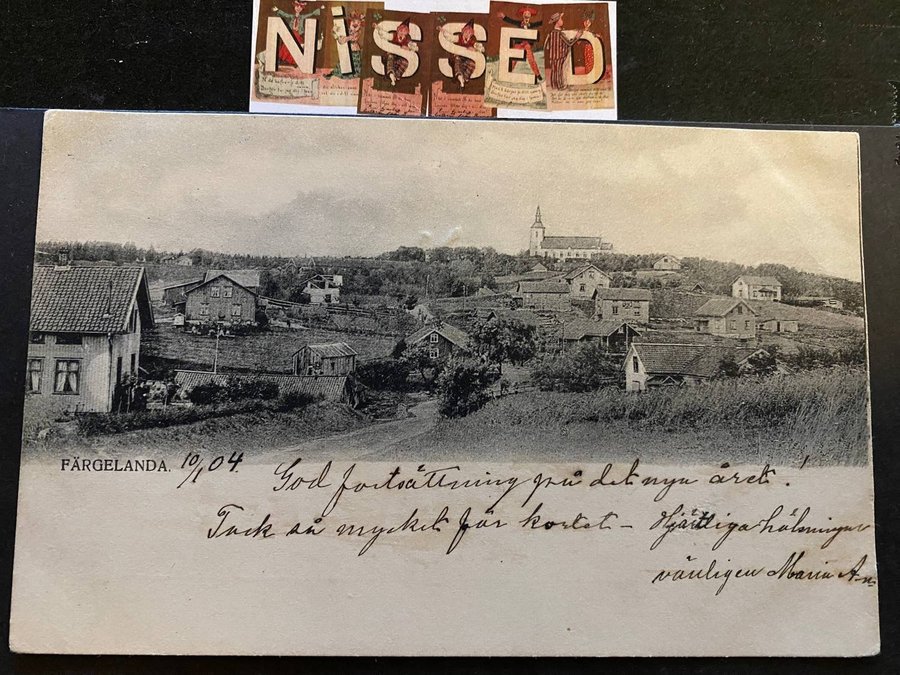 NiSSED
FÄRGELANDA. 10/1 04.
God fortsättning på det nya året!
Tack så mycket för kortet – Hjärtliga hälsningar
vänligen Maria A-n